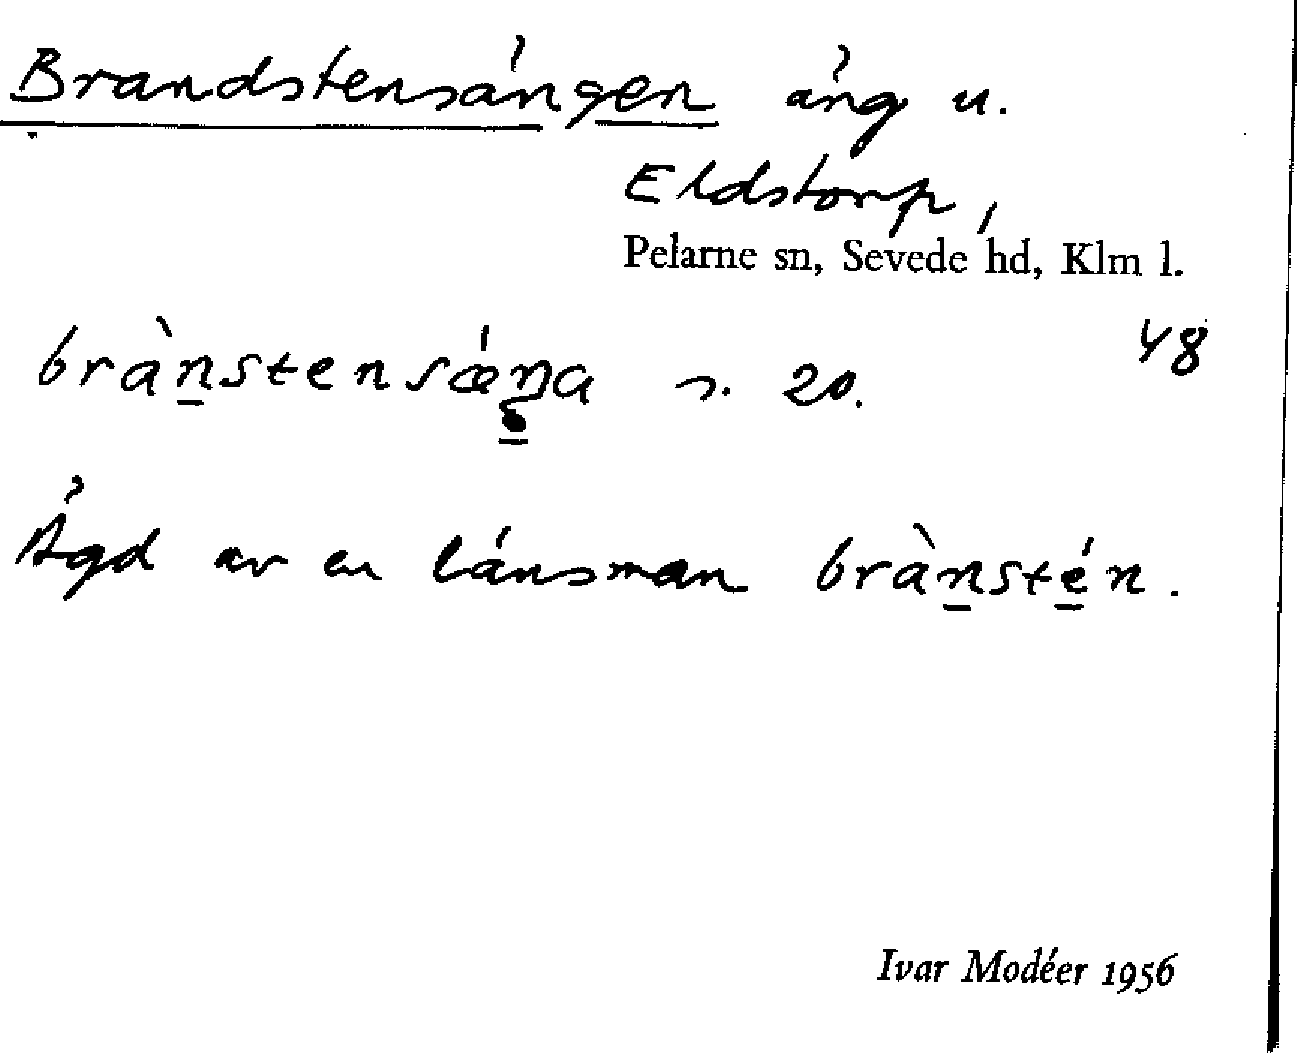 Brandstensängen äng u.
Eldstorp,
Pelarne sn, Sevede hd, Klm l.
48
brànstensǽŋa s. 20.
Ägd av en länsman brànstén.
Ivar Modéer 1956